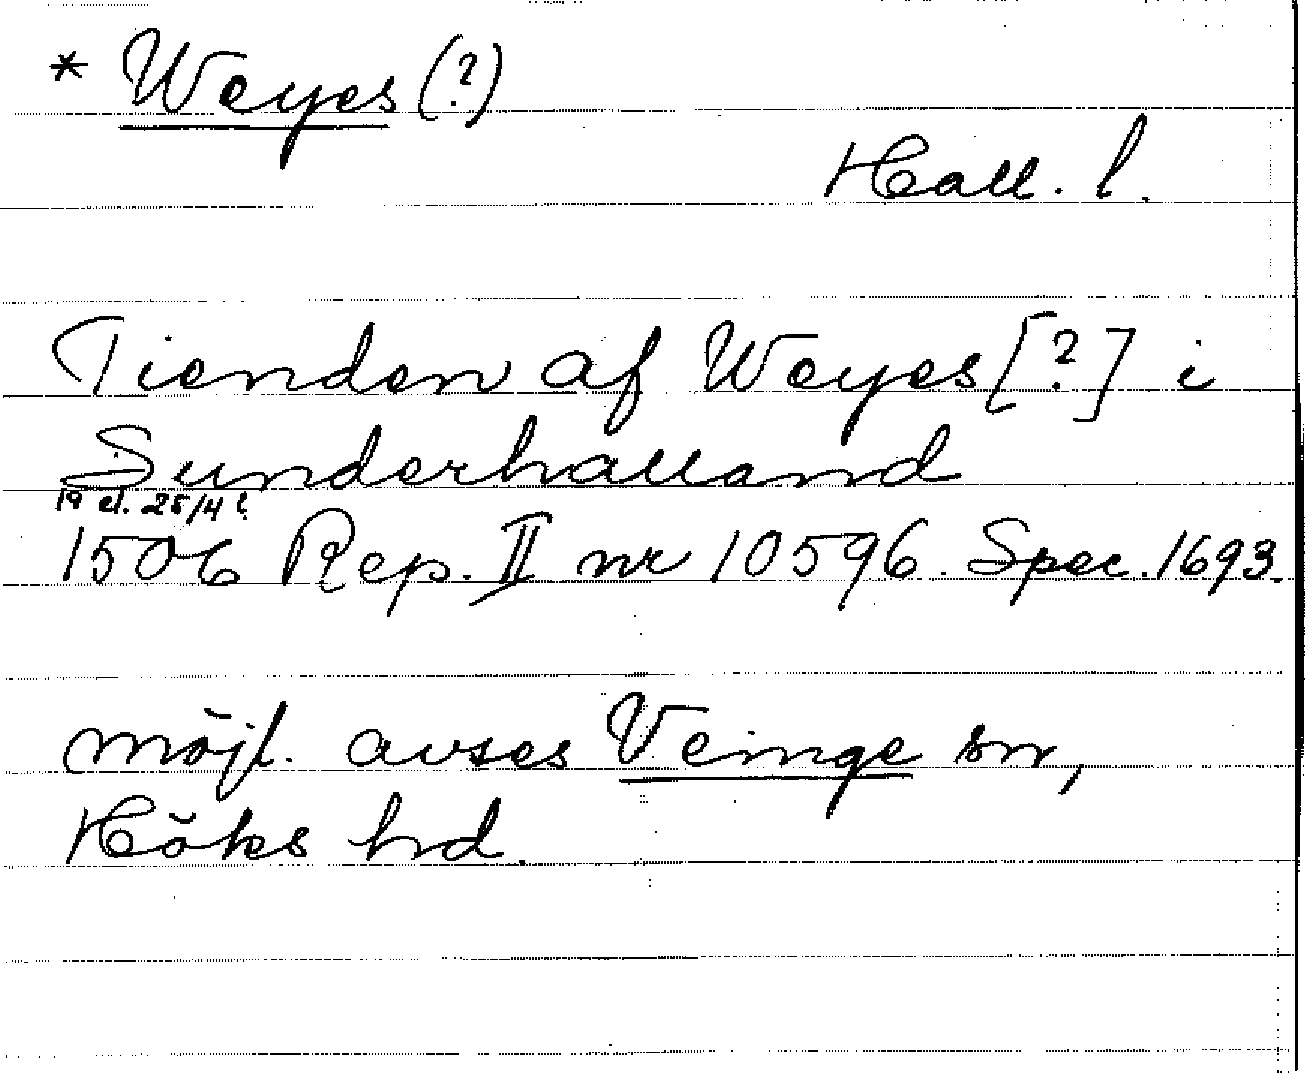 * Weyes (?)
Hall. l.
Tienden af Weyes [?] i
Sunderhalland
19 el. 25/4 ?
1506 Rep. II nr 10596. Spec. 1693.
möjl. avses Veinge sn,
Höks hd.